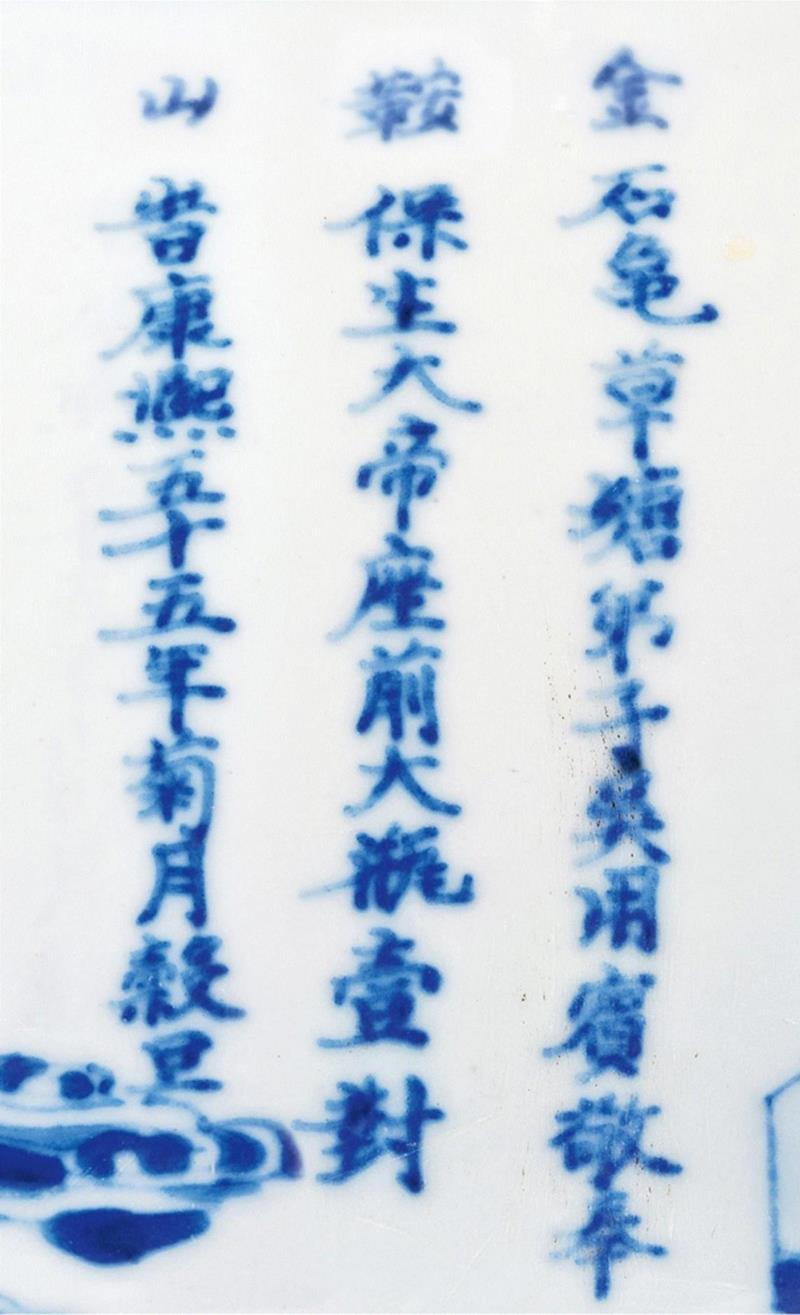 金石亀草弟子吳用賓敬奉
鞍保生大帝座前大瓶壹對
山峕康熙五十五年菊月穀旦